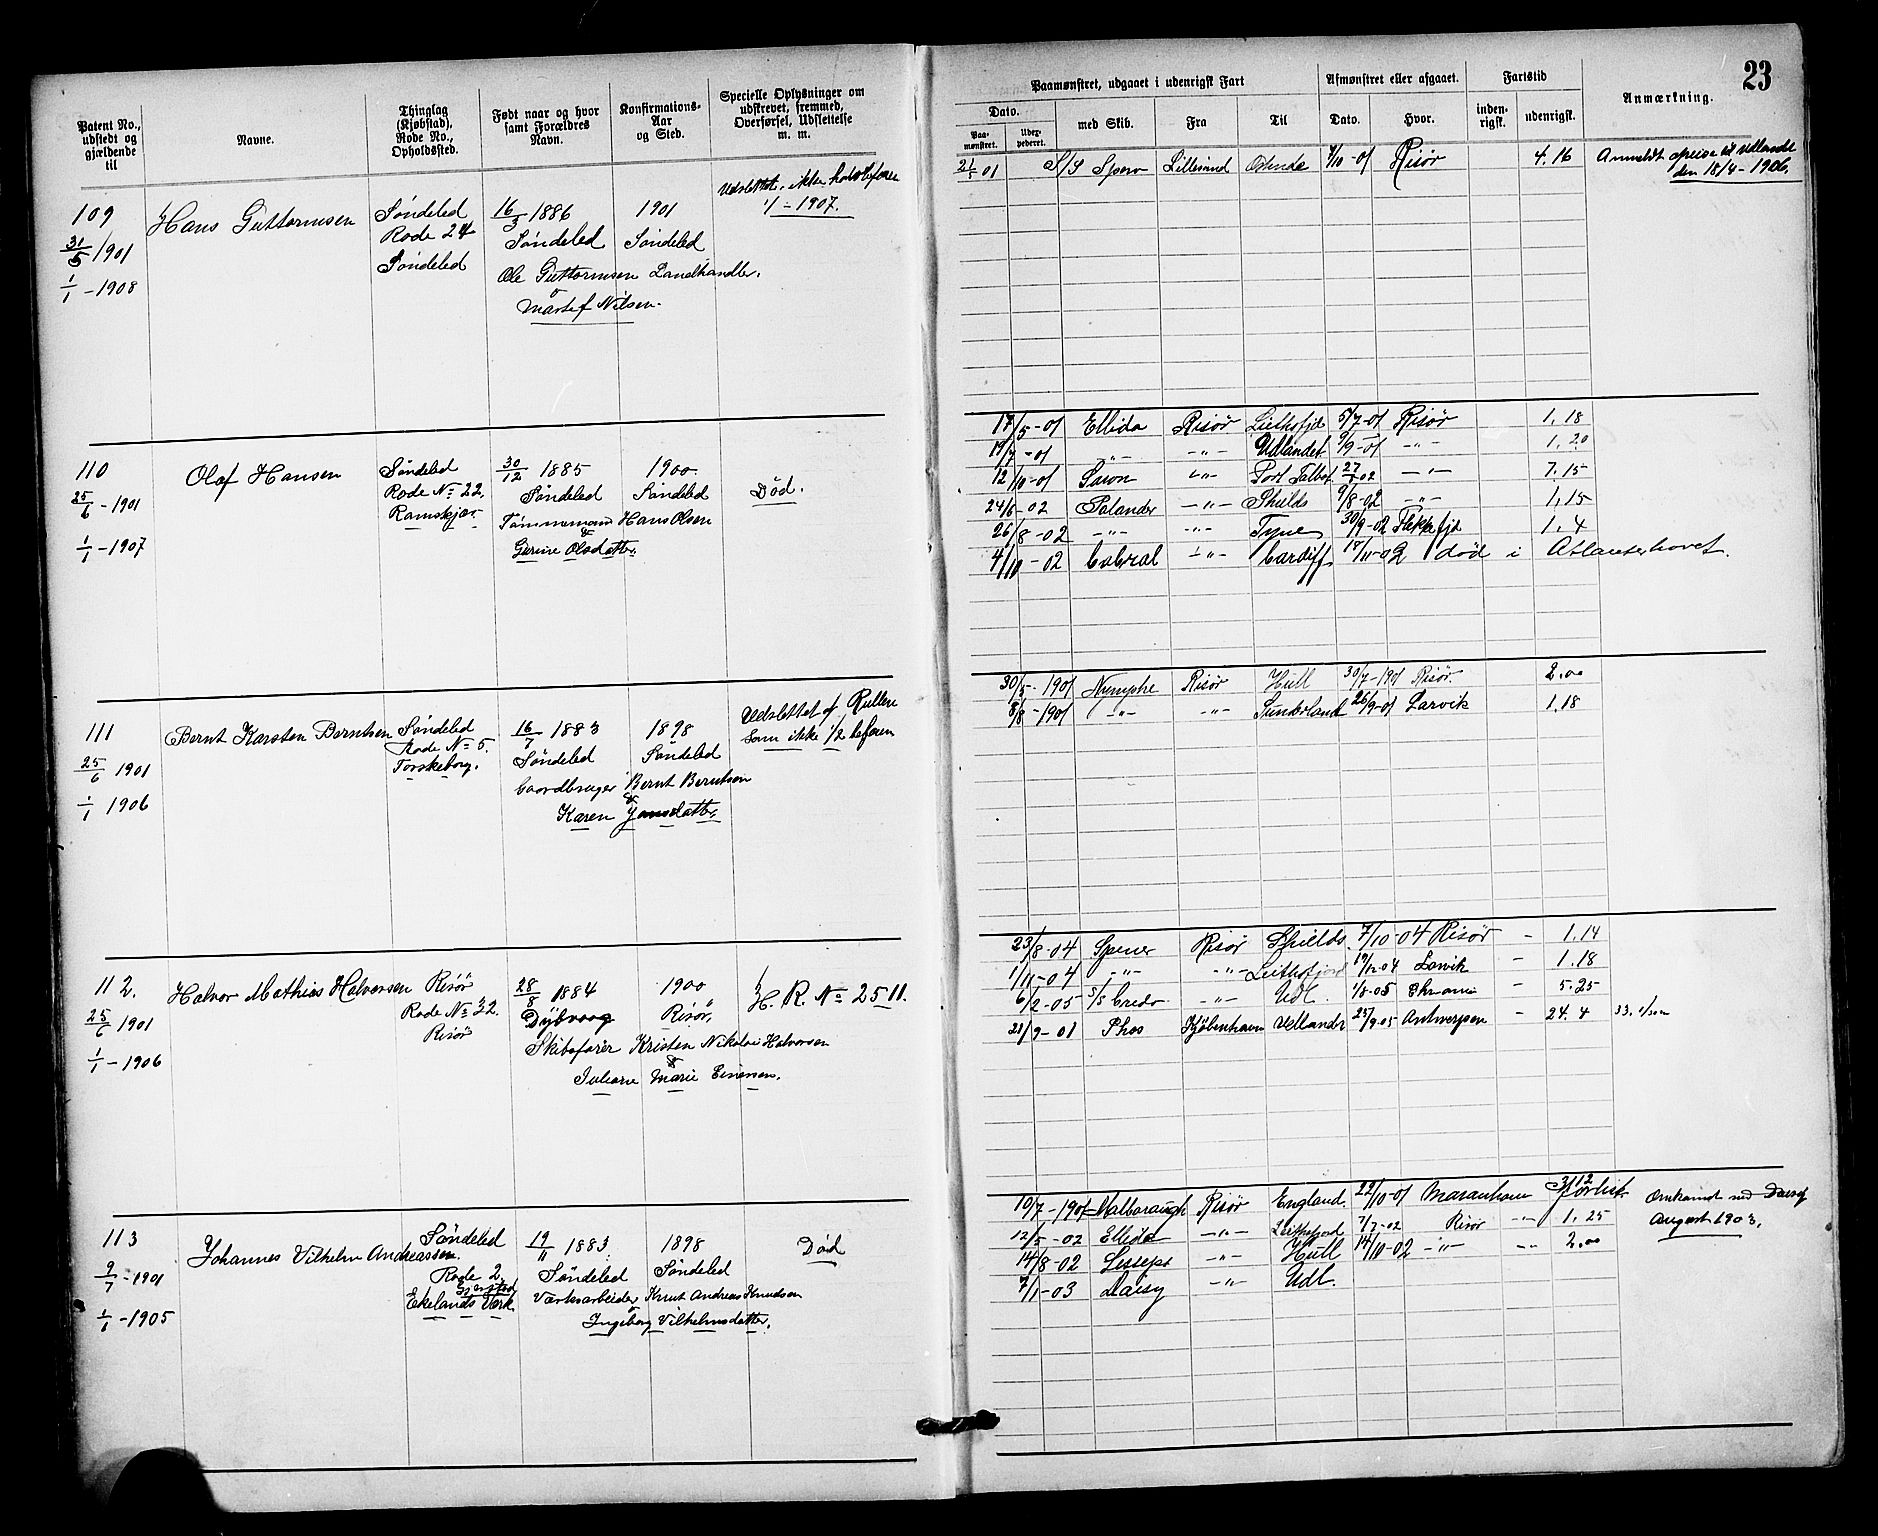 23
Patent No., udstedt og gjældende til
Navne.
Thinglag (Kjøbstad), Rode No., Opholdssted.
Født naar og hvor samt Forældres Navn.
Konfirmations-Aar og Sted.
Specielle Oplysninger om udskrevet, fremmed, Overførsel, Udslettelse m. m.
Paamønstret, udgaaet i udenrigsk Fart
Dato.
Paa-mønstret.
Udex-pederet.
med Skib.
Fra
Til
Afmønstret eller afgaaet.
Dato.
Hvor.
Fartstid
inden-rigsk.
udenrigsk.
Anmærkning.
109
31/5 1901
1/1 - 1908
Hans Guttormsen
Søndeled
Rode 24
Søndeled
16/3 1886
Søndeled
1901
Søndeled
Ole Guttormsen Landhandler.
Nilsen.
Udslettet, ikke
1/1 - 1907.
01 S/S Spero Lillesand Ostende 4/10-01 Risør 4.16
den 18/4 - 1906.
110
25/6 - 1901
1/1 - 1907
Olaf Hansen
Søndeled
Rode No 22.
Ramskjær
30/12 1885
Søndeled
1900.
Søndeled
Tømmermand Hans Olsen
&
Gurine Olsdatter
Død.
17/5-01 Ellida Risør Leithsfjd 5/7-01 Risør 1.18
19/7-01 -"- -"- Udlandet 9/9-01 -"- 1.20
12/10-01 -"- Port Talbot 27/5 02 -"- 7.15
24/6-02 Polander -"- Shilds 9/8-02 -"- 1.15
26/8-02 -"- -"- Tyne 30/9-02 Flekkefjd 1.4
4/10-02 Cabral -"- Cardiff 17/11-02 død i Atlanterhavet.
111
25/6 1901
1/1 1906
Bernt Karsten Berntsen
Søndeled
Rode No 5.
Torskeborg.
16/7 1883
Søndeled
1898
Søndeled
Gaardbruger Bernt Berntsen
&
Karen Jensdatter
Udslettet af Rullen
Som ikke 1/2 befaren
30/5-1901 Nymphe Risør Hull 30/7-1901 Risør 2.00
8/8-1901 -"- -"- Sunderland 26/9-01 Larvik 1.18
112.
25/6 1901
1/1 - 1906
Halvor Mathias Halvorsen
Risør
Rode No 22.
Risør
28/8 1884
Dybvaag
1900
Risør.
Skibsfører Kristen Nikolai Halvorsen
&
Juliane Marie Einersen.
H. R. No 2511.
23/8-04 Spener Risør Shields. 7/10-04 Risør - 1.14
1/11-04 -"- -"- Leithsfjord 19/12-04 Larvik - 1.18
6/2-05 S/S Credo -"- Udl. 1/8-05 - 5.25
23/9-01 Phos Kjøbenhavn Udlandet 25/9-05 Antwerpen - 24.4
113
9/7 - 1901
1/1 - 1905
Johannes Vilhelm Andreassen.
Søndeled
Rode 2
Ekelands Værk
19/11 1883.
Søndeled
1898
Søndeled
Værksarbeider Knut Andreas Knudsen
&
Ingeborg Vilhelmsdatter.
Død
10/7-1901 Malboraugh Risør England. 22/10-01 Maranham 3.12 Forlist
12/5-02 Ellida -"- Leithsfjord 7/7-02 Risør -"- 1.25
14/8-02 Lesseps -"- Hull 14/10-02 -"- -"- 2.00
7/1-03 Daisy -"- Udl.
Omkommet med Daisy
August 1903.